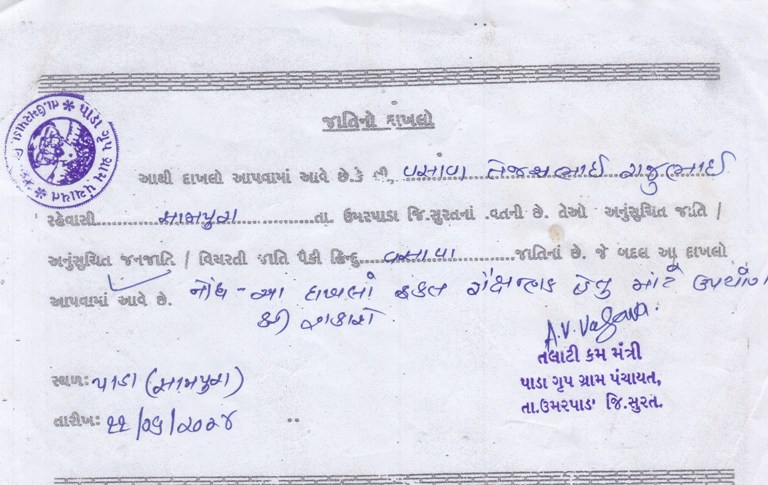 જાતિનો દાખલો
આથી દાખલો આપવામાં આવે છે.કે શ્રી, વસાવા તેજસભાઈ રાજુભાઈ
રહેવાસી સામપુરા તા. ઉમરપાડા જિ.સુરતનાં વતની છે. તેઓ અનુંસુચિત જાતિ /
અનુંસુચિત જનજાતિ / વિચરતી જાતિ પૈકી હિન્દુ વસાવા જાતિનાં છે. જે બદલ આ દાખલો
આપવામાં આવે છે. નોંધ - આ દાખલો ફક્ત શૈક્ષણિક હેતુ માટે ઉપયોગ
કરી શકાશે
A.V. Vasava
તલાટી કમ મંત્રી
સ્થળ: પાડા (સામપુરા)
પાડા ગૃપ ગ્રામ પંચાયત,
તા.ઉમરપાડા જિ.સુરત.
તારીખ: ૧૧/૦૬/૨૦૨૪
પાડા ગૃપ ગ્રામ પંચાયત